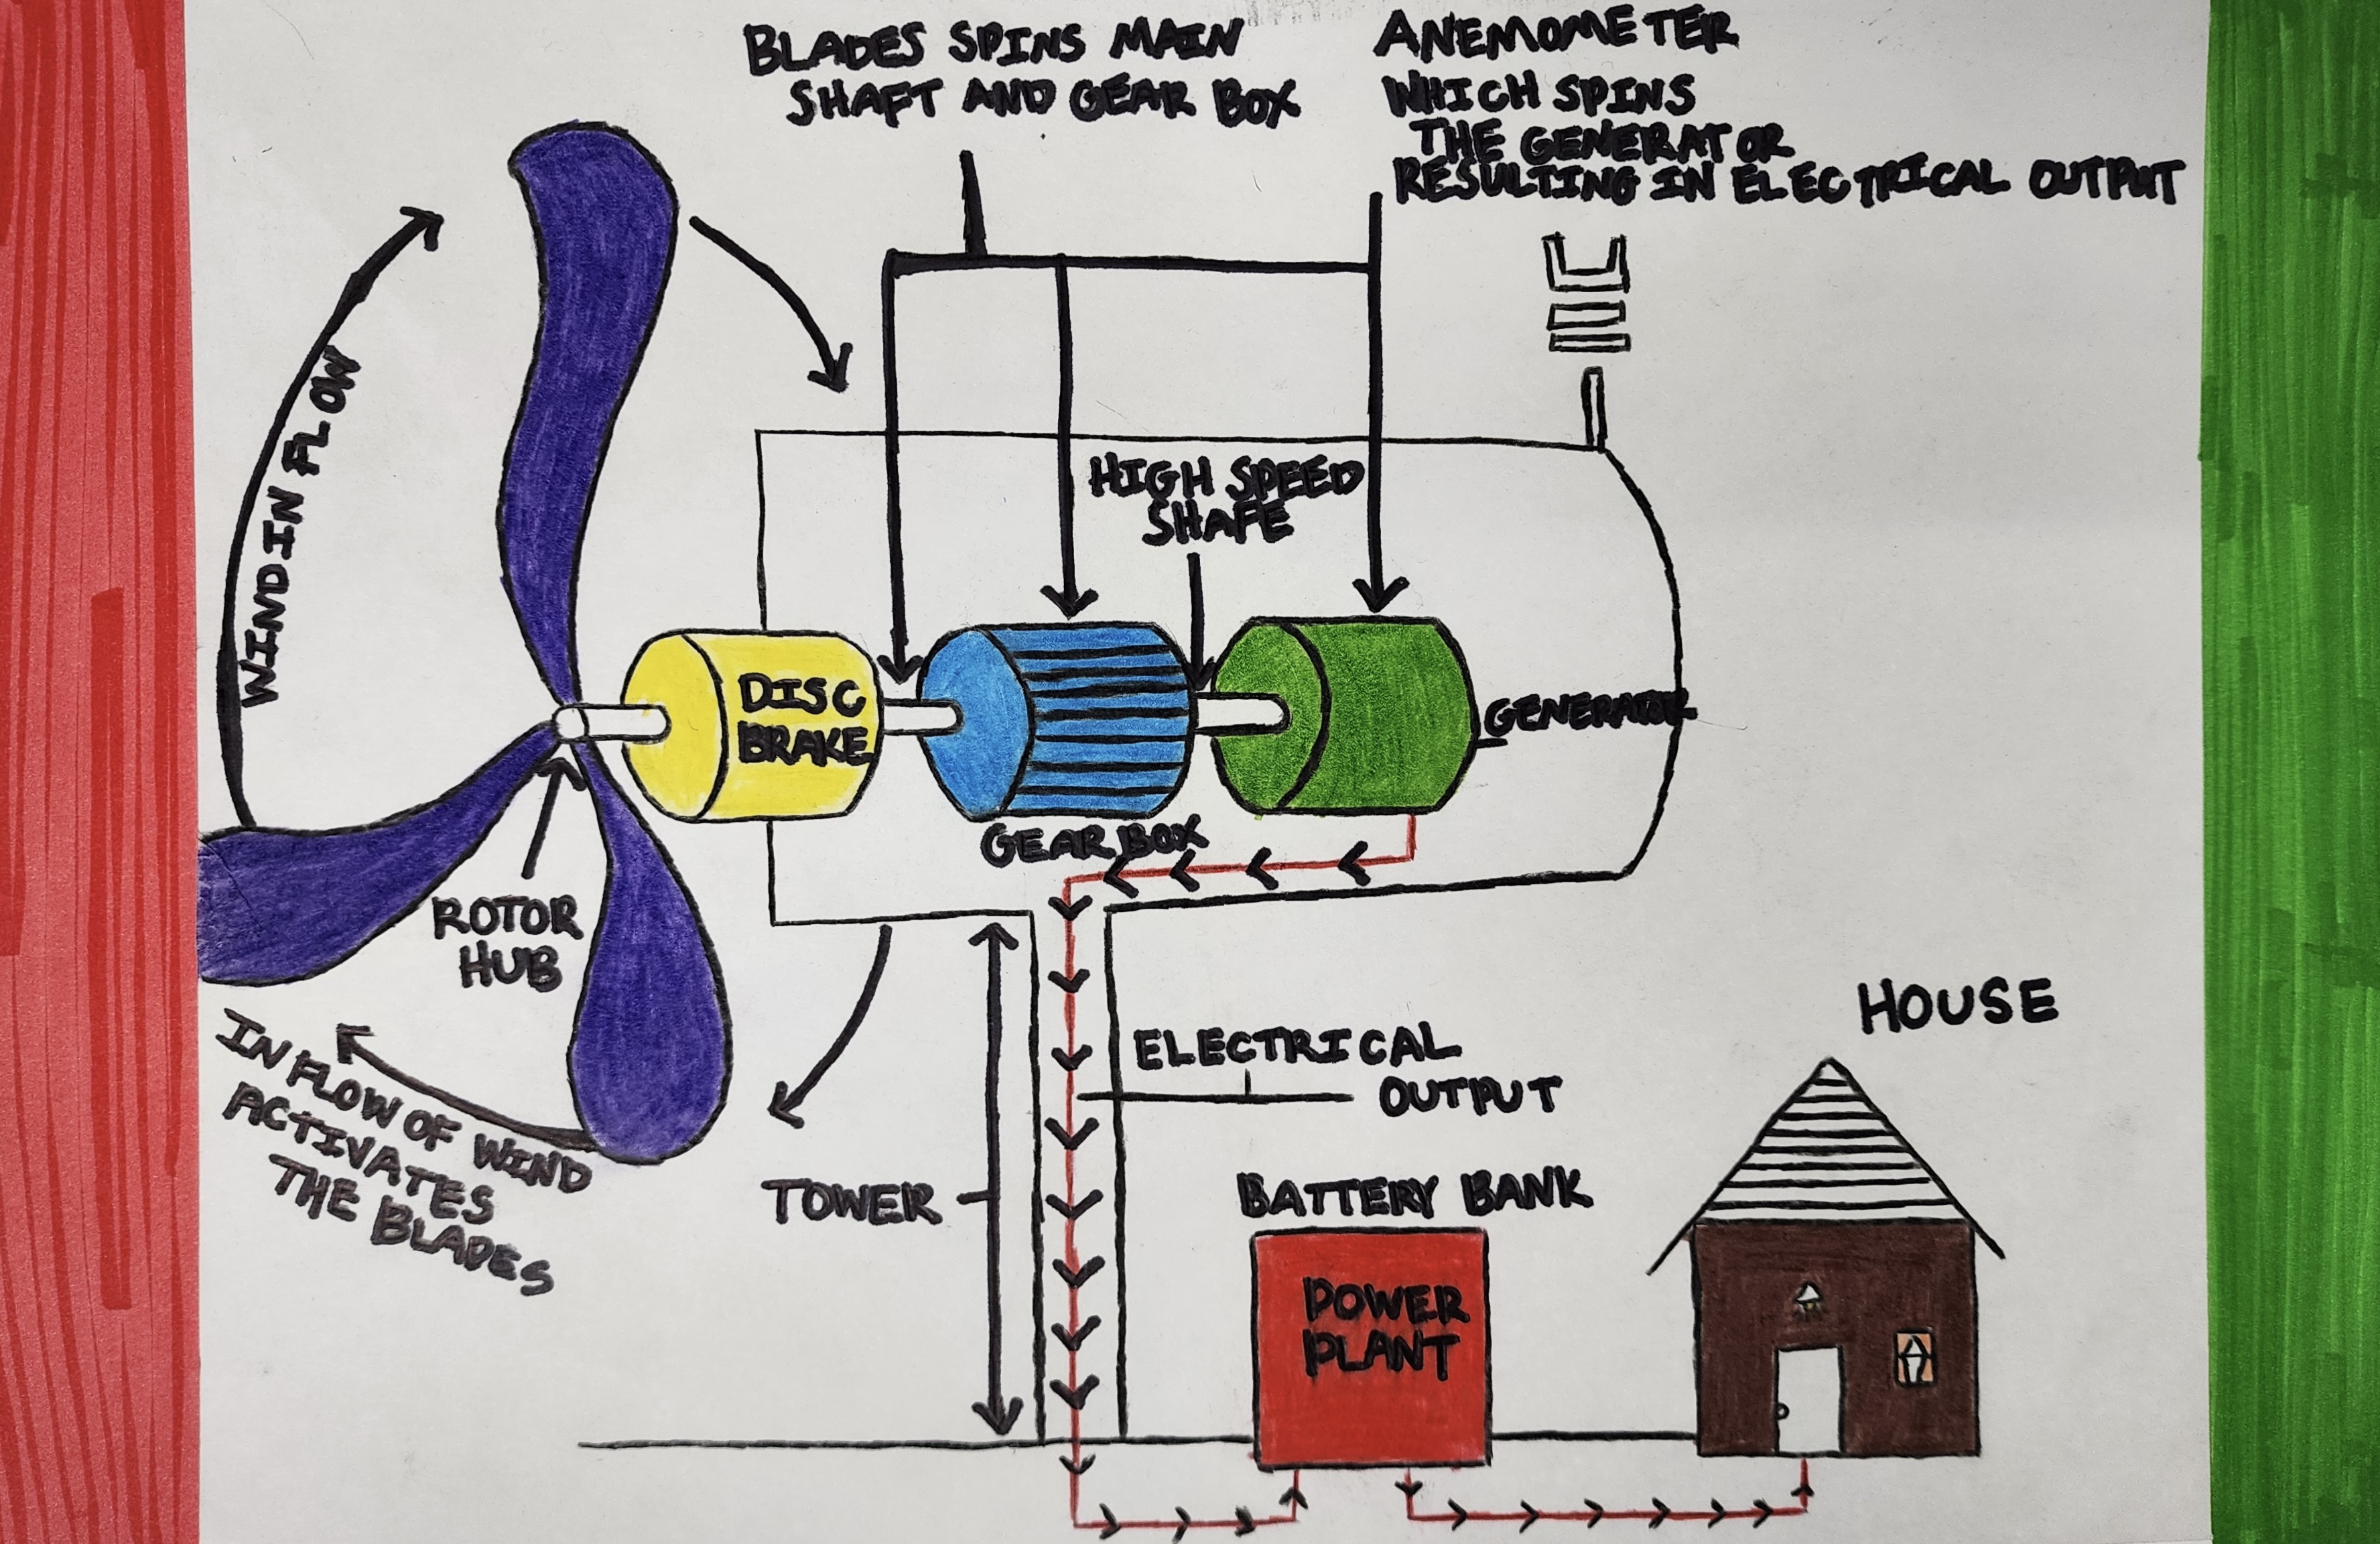 BLADES SPINS MAIN
SHAFT AND GEAR BOX
ANEMOMETER
WHICH SPINS
THE GENERATOR
RESULTING IN ELECTRICAL OUTPUT
WIND IN FLOW
HIGH SPEED
SHAFE
DISC
BRAKE
GENERATOR
GEAR BOX
ROTOR
HUB
IN FLOW OF WIND
ACTIVATES
THE BLADES
TOWER
ELECTRICAL
OUTPUT
HOUSE
BATTERY BANK
POWER
PLANT